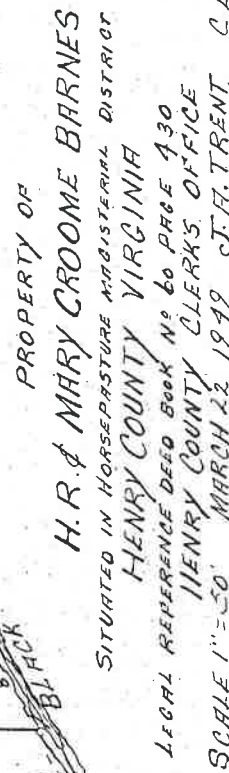 PROPERTY OF
H.R. & MARY CROOME BARNES
SITUATED IN HORSEPASTURE MAGISTERIAL DISTRICT
HENRY COUNTY VIRGINIA
LEGAL REFERENCE DEED BOOK Nº 60 PAGE 430
HENRY COUNTY CLERKS OFFICE
SCALE 1" = 50' MARCH 22 1949 J.A. TRENT
BLACK